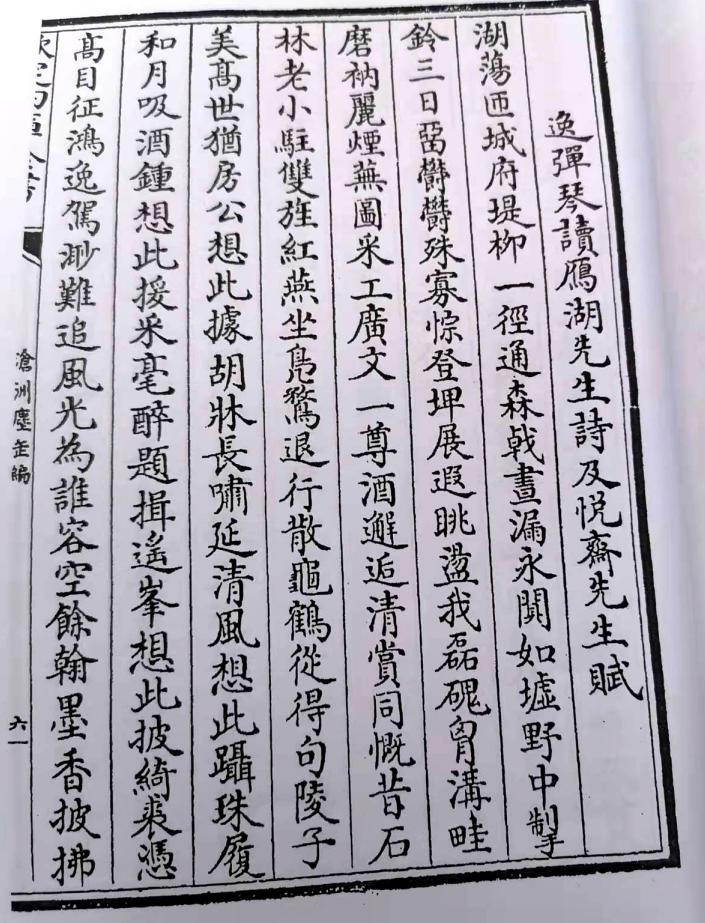 逸彈琴讀鴈湖先生詩及悅齋先生賦
湖蕩匝城府堤柳一徑通森㦸晝漏永闃如墟野中掣
鈴三日畱鬱鬱殊寡悰登埤展遐眺盪我磊磈胷溝畦
磨衲麗煙蕪圖采工廣文一尊酒邂逅清賞同慨昔石
林老小駐雙旌紅燕坐鳧鶩退行散龜鶴從得句陵子
美髙世猶房公想此據胡牀長嘯延清風想此躡珠履
和月吸酒鍾想此援采毫醉題揖遙峯想此披綺裘憑
髙目征鴻逸駕渺難追風光為誰容空餘翰墨香披拂
滄洲塵缶編
六一